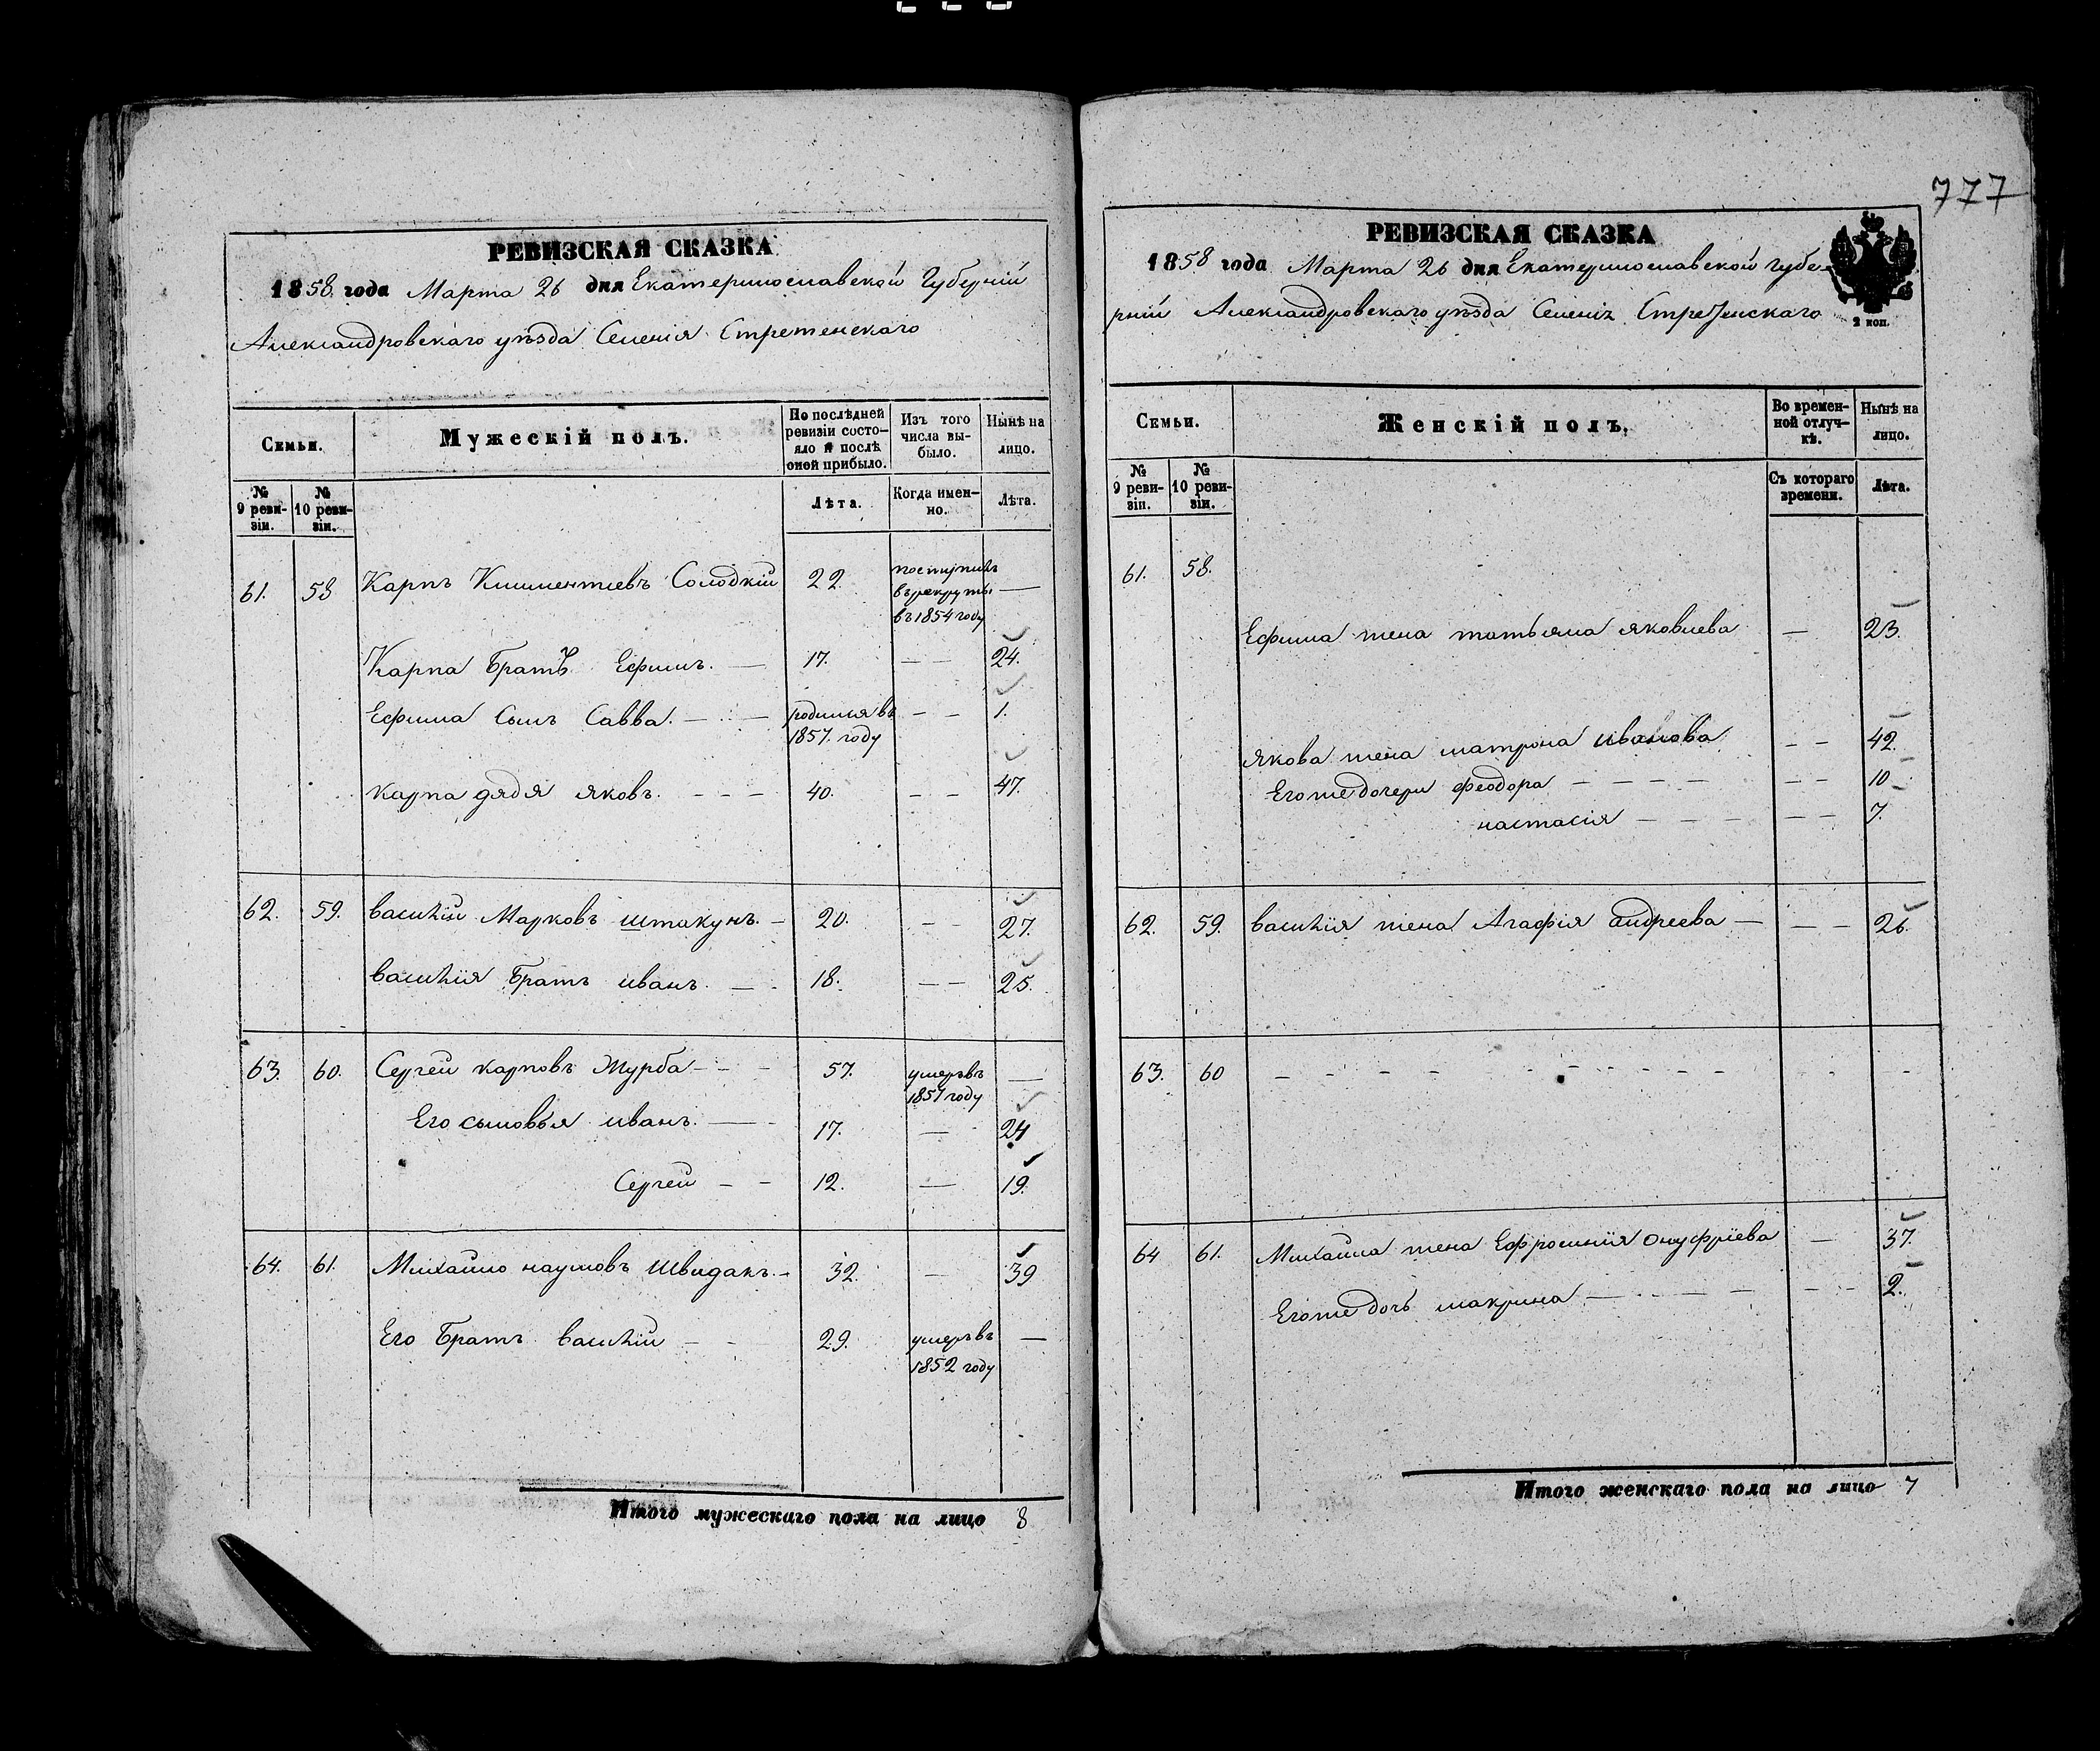 777
РЕВИЗСКАЯ СКАЗКА
1858 года Марта 26 дня Екатеринославской Губерніи
Александровскаго уѣзда Селенія Стретенскаго
Семьи. Мужескій полъ. По послѣдней ревизіи состояло и послѣ оной прибыло. Изъ того числа выбыло. Нынѣ на лицо.
№ 9 ревизіи. № 10 ревизіи. Лѣта. Когда именно. Лѣта.
61. 58 Карпъ Климентіевъ Солодкій 22. поступилъ въ рекруты въ 1854 году —
Карпа Братъ Ефимъ. — 17. — — 24.
Ефима Сынъ Савва. — — родился въ 1857. году — — 1.
Карпа дядя яковъ. — — — 40. — — 47.
62. 59. василій Марковъ штакунъ. — 20. — 27.
василія Братъ иванъ. — 18. — — 25.
63. 60. Сергей карповъ Журба — — — 57. умеръ въ 1857 году —
Его сыновья иванъ. — 17. — 24
Сергей — — 12. — 19.
64. 61. Михайло наумовъ Швидакъ. — 32. — 39
Его Братъ василій — — 29. умеръ въ 1852 году —
Итого мужескаго пола на лицо 8
РЕВИЗСКАЯ СКАЗКА
1858 года Марта 26 дня Екатеринославской Губе-
рніи Александровскаго уѣзда Селенія Стретенскаго
2 коп.
Семьи. Женскій полъ. Во временной отлучкѣ. Нынѣ на лицо.
№ 9 ревизіи. № 10 ревизіи. Съ котораго времени. Лѣта.
61. 58.
Ефима жена татьяна яковлева — 23.
якова жена матрона иванова — — 42.
Его же дочери феодора — — — — — — 10
настасія — — — — — — 7.
62. 59. василія жена Агафія андреева — — — 26.
63. 60 — — — — — — — — — —
64 61. Михайла жена Ефросинія онуфріева — 37.
Его же дочь макрина — — — — — — 2.
Итого женскаго пола на лицо 7